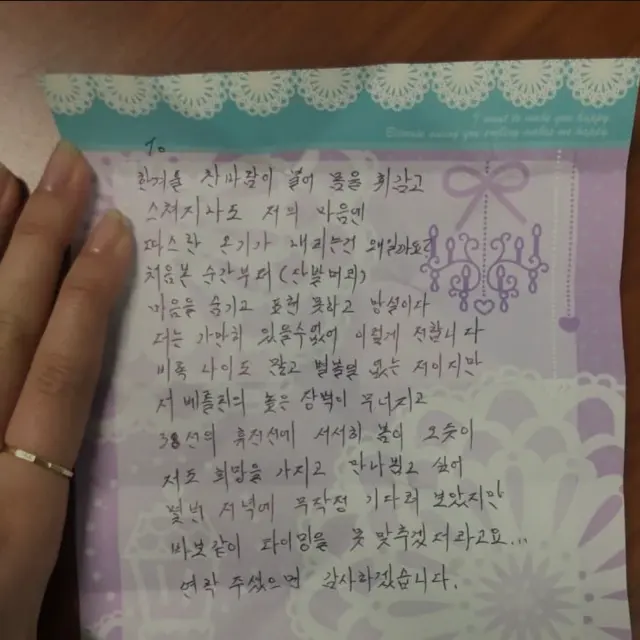 I want to make you happy
Because seeing you smiling makes me happy
To
한겨울 찬바람이 불어 몸을 휘감고
스쳐지나도 저의 마음엔
따스한 온기가 내리는건 왜일까요?
처음본 순간부터(단발머리)
마음을 숨기고 표현 못하고 망설이다
더는 가만히 있을수없어 이렇게 전합니다
비록 나이도 많고 볼품 없는 저이지만
저 베를린의 높은 장벽이 무너지고
38선의 휴전선에 서서히 봄이 오듯이
저도 희망을 가지고 만나뵙고 싶어
몇번 저녁에 무작정 기다려 보았지만
바보같이 타이밍을 못 맞추겠더라고요...
연락 주셨으면 감사하겠습니다.